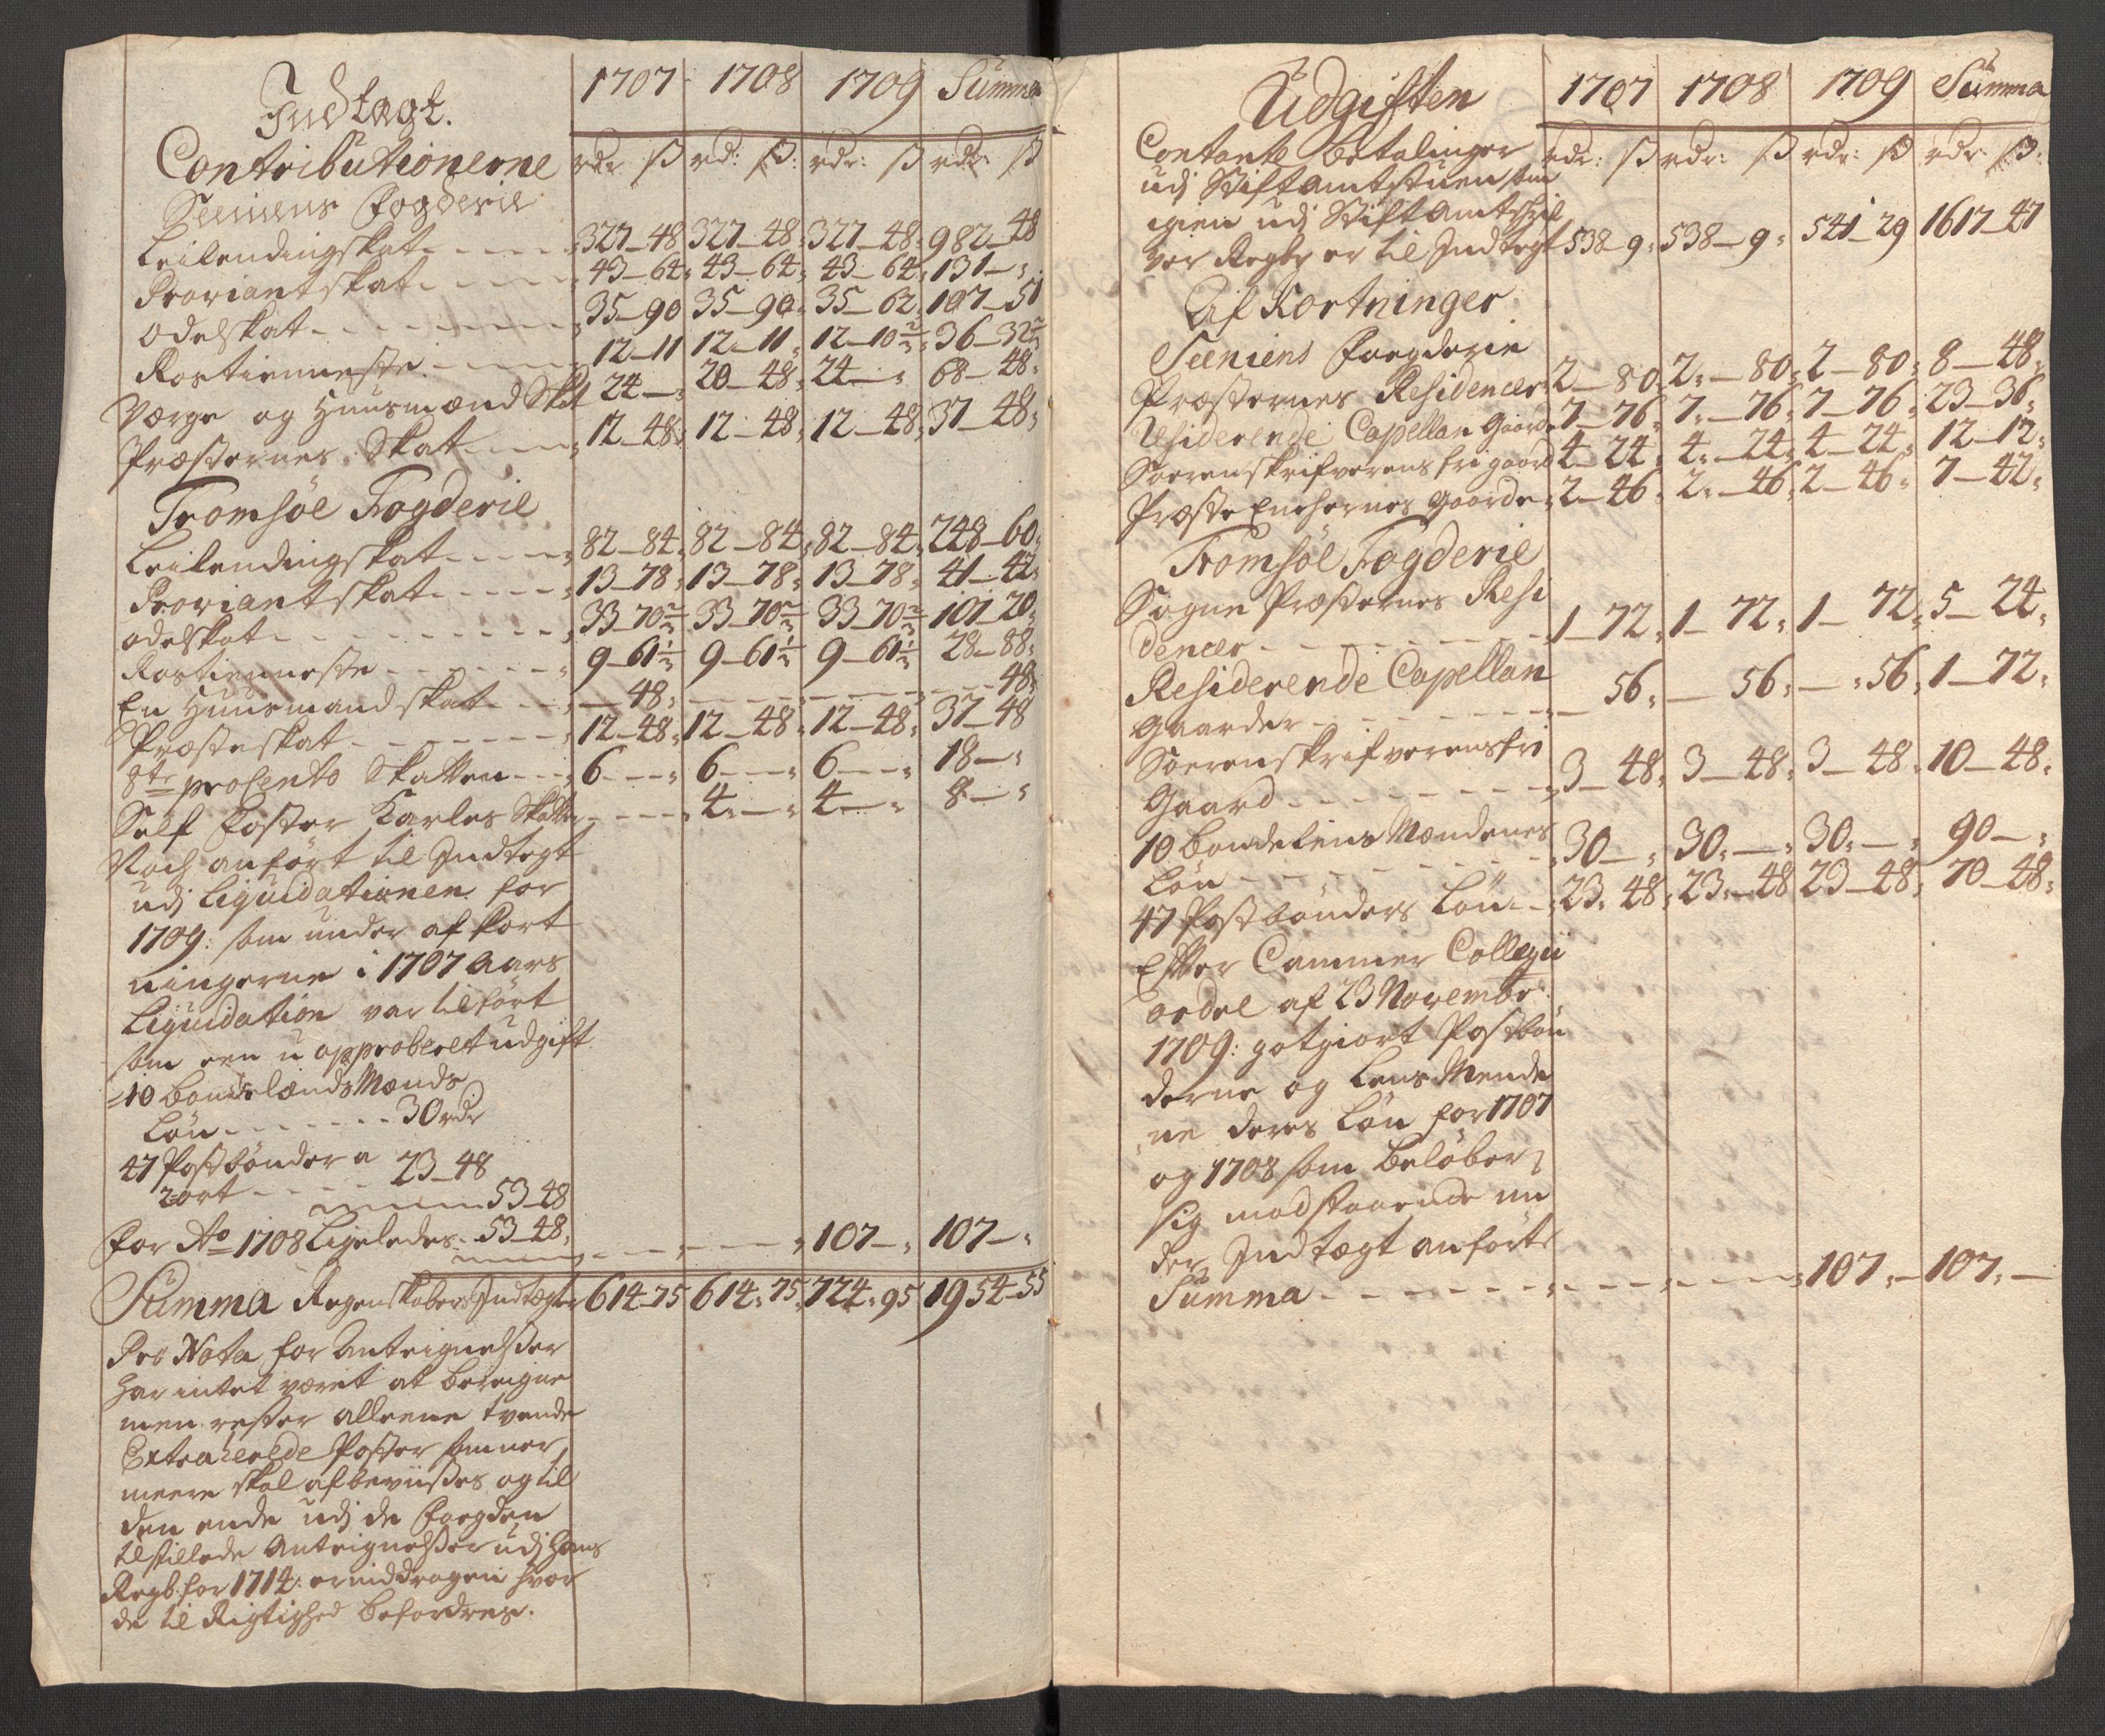 Indtægt.
1707 1708 1709 Summa
Contributionerne rdr ß rd: ß: rdr: ß rdr: ß
Seeniens Fogderie
Leilendingskat - - - - - 327-48 327-48 327-48 982-48
Proviantskat - - - - - 43-64 43-64 43-64 131-
Odelskat - - - - - 35-90 35-90 35-62 107-51
Rostienneste - - - - 12-11 12-11 12-10 2/3 36-32 2/3
Værge og Huusmænd Skat 24- 20-48 24- 68-48
Præsternes Skat - - - 12-48 12-48 12-48 37-48
Tromsöe Fogderie
Leilendingskat - - - - 82-84 82-84 82-84 248-60
Proviantskat - - - - - 13-78 13-78 13-78 41-42
odelskat - - - - - - 33-70 2/3 33-70 2/3 33-70 2/3 101-20
Rostienneste - - - - - 9-61 1/3 9-61 1/3 9-61 1/3 28-88
En Huusmand skat - - - -48 - - - 48
Præsteskat - - - - - 12-48 12-48 12-48 37-48
8te procento Skatten - - - 6- 6- 6- 18-
Self Foster Karles Skatter - - - 4- 4- 8-
Noch anfört til Indtegt
udj Liquidationen for
1709: som under afkort
ningerne i 1707 Aars
Liquidation var tilfört
som een u approberet udgift
10 bondelænds Mænds
Lön - - - - - - 30 rdr
47 Postbönder a
2 ort - - - - 23-48
53-48
For Ao 1708 Ligeledes - 53-48
- - - - 107- 107-
Summa Regenskabers Indtægter 614-75 614-75 724-95 1954-55
Pro Nota for Anteignelser
har intet været at bereigne
men rester alleene tvende
Extraherede Poster som ner
meere skal afbeviises og til
den ende udj de Fogden
tilstillede Anteignelser udj hans
Regb: for 1714: er inddragen hvor
de til Rigtighed befordres.
Udgiften
1707 1708 1709 Summa
Contante betalinger rdr: ß rdr: ß rdr: ß rdr: ß:
udj Stiftamtstuen som
igien udj Stiftamtskri
ver Regbr er til Indtegt 538-9 538-9 541-29 1617-47
Af Kortninger
Seeniens Foegderie
Præsternes Residencer 2-80 2-80 2-80 8-48
Residerende Capellan Gaarde 7-76 7-76 7-76 23-36
Sorenskrifverens fri gaard 4-24 4-24 4-24 12-12
Præste Enchernes Gaarde 2-46 2-46 2-46 7-42
Tromsöe Fogderie
Sogne Præsternes Resi
dencer - - - - - - - 1-72 1-72 1-72 5-24
Residerende Capellan
Gaarder - - - - - - -56 -56 -56 1-72
Sorenskrifverens fri
Gaard - - - - - - - 3-48 3-48 3-48 10-48
10 bondelens Mændenes
Lön - - - - - - - 30- 30- 30- 90-
47 Postbönders Lön - - 23-48 23-48 23-48 70-48
Efter Cammer Collegii
ordre af 23 Novembr
1709: gotgiort Postbön
derne og Lens Mende
ne deres Lön for 1707
og 1708 som beløber
sig modstaaende un
der Indtægt anført
Summa - - - - - - - - - 107- 107-